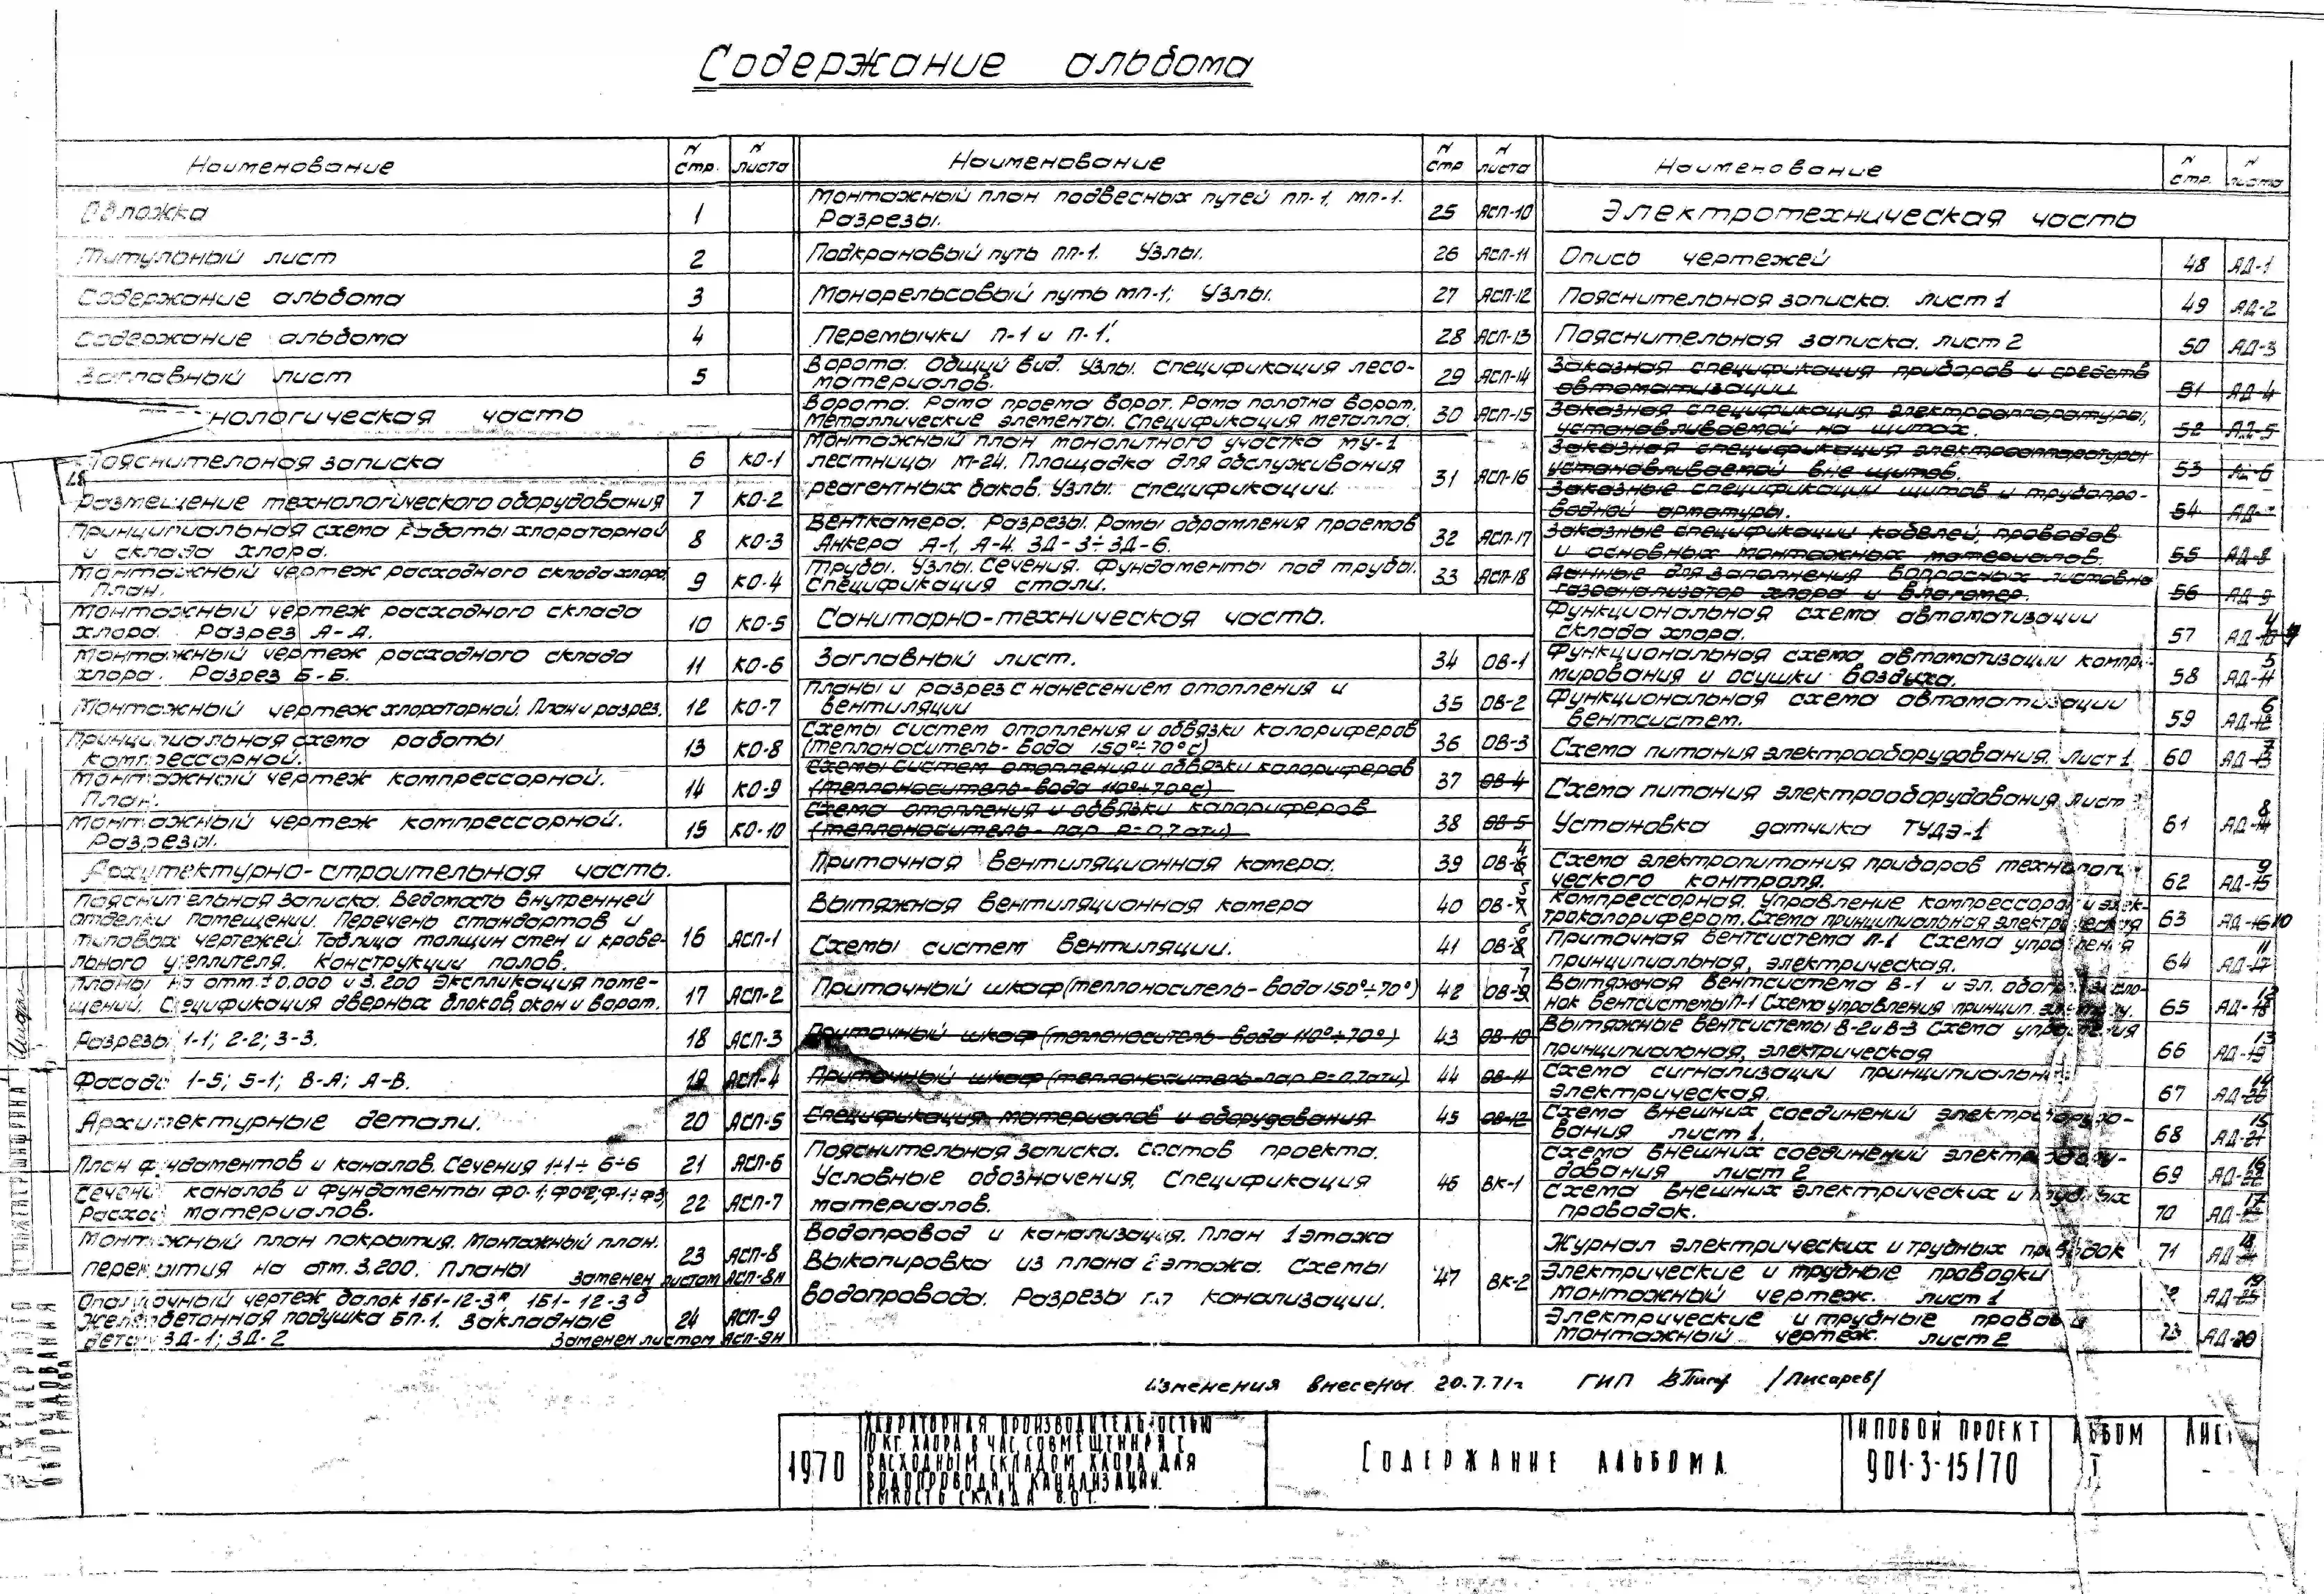 Содержание альбома
Наименование
N стр.
N листа
Обложка 1
Титульный лист 2
Содержание альбома 3
Содержание альбома 4
Заглавный лист 5
нологическая часть
Пояснительная записка 6 КО-1
Размещение технологического оборудования 7 КО-2
Принципиальная схема работы хлораторной
и склада хлора. 8 КО-3
Монтажный чертеж расходного склада хлора.
План. 9 КО-4
Монтажный чертеж расходного склада
хлора. Разрез А-А. 10 КО-5
Монтажный чертеж расходного склада
хлора. Разрез Б-Б. 11 КО-6
Монтажный чертеж хлораторной. План и разрез. 12 КО-7
Принципиальная схема работы
компрессорной. 13 КО-8
Монтажный чертеж компрессорной.
План. 14 КО-9
Монтажный чертеж компрессорной.
Разрезы. 15 КО-10
Архитектурно-строительная часть.
Пояснительная записка. Ведомость внутренней
отделки помещении. Перечень стандартов и
типовых чертежей. Таблица толщин стен и крове-
льного утеплителя. Конструкции полов. 16 АСП-1
Планы на отм. ±0.000 и 3.200 Экспликация поме-
щений. Спецификация дверных блоков, окон и ворот. 17 АСП-2
Разрезы 1-1; 2-2; 3-3. 18 АСП-3
Фасады 1-5; 5-1; В-А; А-В. 19 АСП-4
Архитектурные детали. 20 АСП-5
План фундаментов и каналов. Сечения 1÷1 ÷ 6÷6 21 АСП-6
Сечения каналов и фундаменты ФО-1; ФО-2; Ф-1÷Ф3
Расход материалов. 22 АСП-7
Монтажный план покрытия. Монтажный план.
перекрытия на отм. 3.200. Планы 23 АСП-8
Заменен листом АСП-8Н
Опалубочный чертеж балок 1Б1-12-3, 1Б1-12-3
Железобетонная подушка БП-1. Закладные 24 АСП-9
детали ЗД-1; ЗД-2 Заменен листом АСП-9Н
Наименование
N стр
N листа
Монтажный план подвесных путей ПП-1, МП-1.
Разрезы. 25 АСП-10
Подкрановый путь ПП-1. Узлы. 26 АСП-11
Монорельсовый путь МП-1; Узлы. 27 АСП-12
Перемычки П-1 и П-1'. 28 АСП-13
Ворота. Общий вид. Узлы. Спецификация лесо-
материалов. 29 АСП-14
Ворота. Рама проема ворот. Рама полотна ворот.
Металлические элементы. Спецификация металла. 30 АСП-15
Монтажный план монолитного участка МУ-1
лестницы М-24. Площадка для обслуживания
реагентных баков. Узлы. Спецификации. 31 АСП-16
Венткамера. Разрезы. Рамы обрамления проемов
Анкера А-1, А-4. ЗД-3÷ЗД-6. 32 АСП-17
Трубы. Узлы. Сечения. Фундаменты под трубы.
Спецификация стали. 33 АСП-18
Санитарно-техническая часть.
Заглавный лист. 34 ОВ-1
Планы и разрез с нанесением отопления и
вентиляции 35 ОВ-2
Схемы систем отопления и обвязки калориферов
(теплоноситель-вода 150°÷70°с) 36 ОВ-3
Схемы систем отопления и обвязки калориферов
(теплоноситель-вода 110°÷70°с) 37 ОВ-4
Схема отопления и обвязки калориферов
(теплоноситель-пар Р=0,7ати) 38 ОВ-5
Приточная вентиляционная камера. 39 ОВ-6 4
Вытяжная вентиляционная камера 40 ОВ-7 5
Схемы систем вентиляции. 41 ОВ-8 6
Приточный шкаф (теплоноситель-вода 150°÷70°) 42 ОВ-9 7
Приточный шкаф (теплоноситель-вода 110°÷70°) 43 ОВ-10
Приточный шкаф (теплоноситель-пар Р=0,7ати) 44 ОВ-11
Спецификация материалов и оборудования 45 ОВ-12
Пояснительная записка. Состав проекта.
Условные обозначения. Спецификация
материалов. 46 ВК-1
Водопровод и канализация. План 1 этажа
Выкопировка из плана 2 этажа. Схемы
водопровода. Разрезы по канализации. 47 ВК-2
Наименование
N стр.
N листа
Электротехническая часть
Опись чертежей 48 АД-1
Пояснительная записка. лист 1 49 АД-2
Пояснительная записка. лист 2 50 АД-3
Заказная спецификация приборов и средств
автоматизации. 51 АД-4
Заказная спецификация электроаппаратуры,
устанавливаемой на щитах. 52 АД-5
Заказная спецификация электроаппаратуры
устанавливаемой вне щитов. 53 АД-6
Заказные спецификации щитов и трубопро-
водной арматуры. 54 АД-7
Заказные спецификации кабелей, проводов
и основных монтажных материалов. 55 АД-8
Данные для заполнения вопросных листов на
газоанализатор хлора и влагомер. 56 АД-9
Функциональная схема автоматизации
склада хлора. 57 АД-10 4
Функциональная схема автоматизации компри-
мирования и осушки воздуха. 58 АД-11 5
Функциональная схема автоматизации
вентсистем. 59 АД-12 6
Схема питания электрооборудования. Лист 1 60 АД-13 7
Схема питания электрооборудования Лист 2
Установка датчика ТУДЭ-1 61 АД-14 8
Схема электропитания приборов технологи-
ческого контроля. 62 АД-15 9
Компрессорная. Управление компрессора и элек-
трокалорифером. Схема принципиальная электрическая 63 АД-16 10
Приточная вентсистема П-1 Схема управления
принципиальная, электрическая. 64 АД-17 11
Вытяжная вентсистема В-1 и эл. обогрев засло-
нок вентсистемы П-1 Схема управления принцип. электр. 65 АД-18 12
Вытяжные вентсистемы В-2 и В-3 Схема управления
принципиальная, электрическая 66 АД-19 13
Схема сигнализации принципиальная
электрическая. 67 АД-20 14
Схема внешних соединений электрооборудо-
вания лист 1. 68 АД-21 15
Схема внешних соединений электрообору-
дования лист 2 69 АД-22 16
Схема внешних электрических и трубных
проводок. 70 АД-23 17
Журнал электрических и трубных проводок 71 АД-24 18
Электрические и трубные проводки
монтажный чертеж. лист 1 72 АД-25 19
Электрические и трубные проводки
монтажный чертеж. лист 2 73 АД-20
Изменения внесены 20.7.71г ГИП /Писарев/
1970
Хлораторная производительностью
10 кг. хлора в час, совмещенная с
расходным складом хлора для
водопровода и канализации.
Емкость склада 8.0 т.
Содержание альбома
Типовой проект
901-3-15/70
Альбом
I
Лист
-